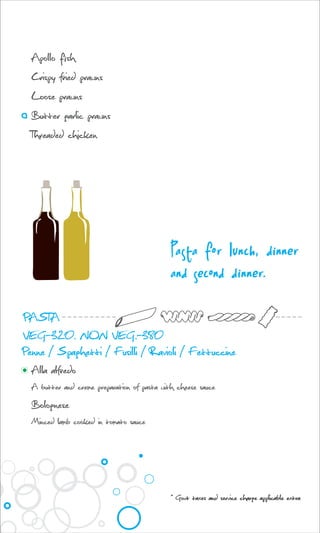 Apollo fish
Crispy fried prawns
Loose prawns
Butter garlic prawns
Threaded chicken
Pasta for lunch, dinner
and second dinner.
PASTA
VEG-320. NON VEG.-380
Penne / Spaghetti / Fusilli / Ravioli / Fettuccine
Alla alfredo
A butter and creme preparation of pasta with cheese sauce
Bolognese
Minced lamb cooked in tomato sauce
* Govt taxes and service charge applicable extra